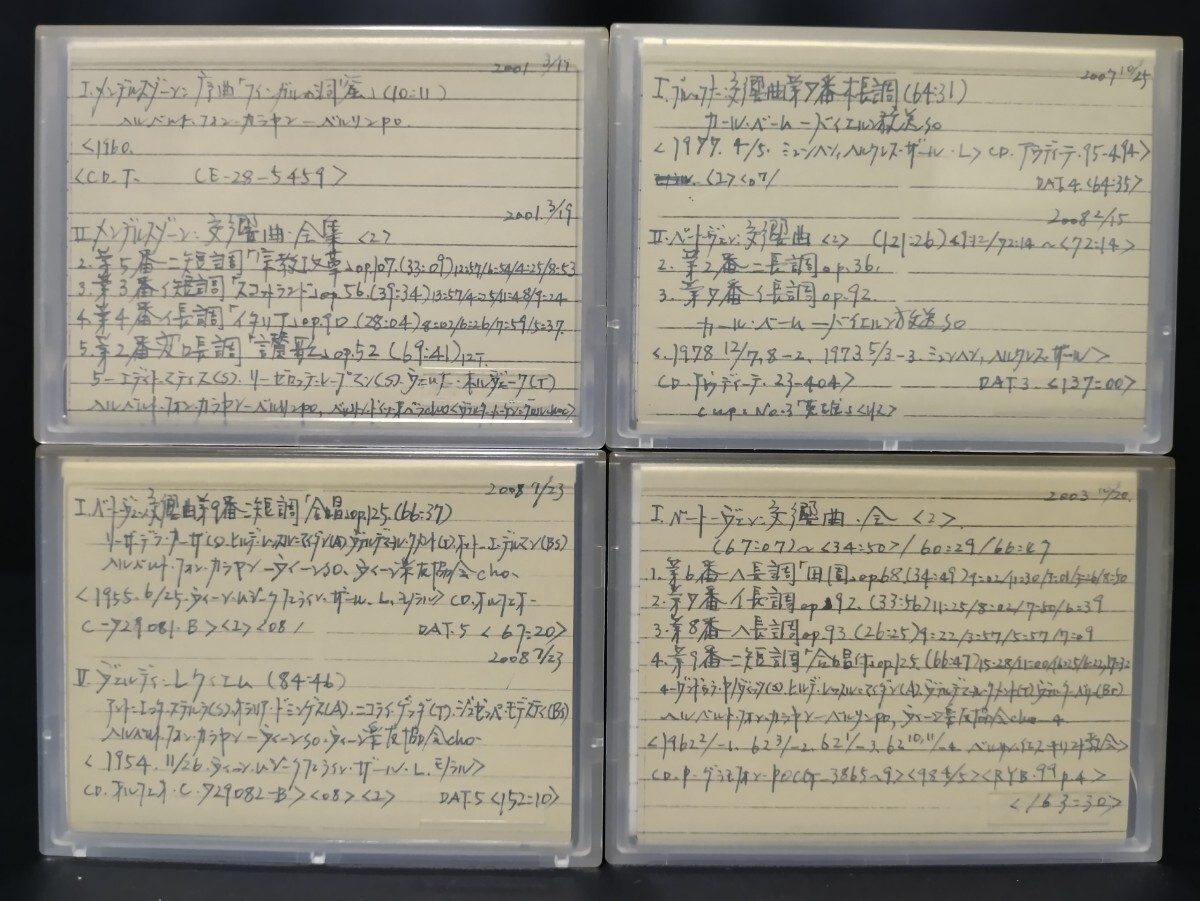 2001 3/19
I.メンデルスゾーン:序曲「フィンガルの洞窟」(10:11)
ヘルベルト・フォン・カラヤン―ベルリンPO
<1960.
<CD.T. CE-28-5459>
2001.3/19
II.メンデルスゾーン:交響曲・全集 <2>
2.第5番ニ短調「宗教改革」op.107.(33:09)12:57/6:54/4:25/8:53
3.第3番イ短調「スコットランド」op.56.(39:34)
4.第4番イ長調「イタリア」op.90(28:04)8:02/6:26/7:59/5:37.
5.第2番変ロ長調「讃歌」op.52(69:41)12T.
5―エディト・マティス(S).リーゼロッテ・レープマン(S).ヴェルナー・ホルヴェーク(T)
ヘルベルト・フォン・カラヤン―ベルリンPO,
2007 10/25
I.ブルックナー:交響曲第7番ホ長調(64:31)
カール・ベーム―バイエルン放送SO
<1977.4/5.ミュンヘン,ヘルクレス・ザール.L>CD.アウディーテ.95-494>
<I><07/ DAT.4.<64:35>
2008 2/15
II.ベートーヴェン:交響曲<2> (121:26) ~<72:14>
2.第2番ニ長調op.36.
3.第7番イ長調op.92.
カール・ベーム―バイエルン放送SO
<.1978 12/7,8-2.1973.5/3-3.ミュンヘン,ヘルクレス・ザール>
CD.アウディーテ.23-404> DAT.3.<137:00>
No.3「英雄」
2008 7/23
I.ベートーヴェン:交響曲第9番ニ短調「合唱」op.125.(66:37)
リーザ・デラ・カーザ(S).ヒルデ・レッスル=マイダン(A).ヴァルデマール・クメント(T).オットー・エーデルマン(BS)
ヘルベルト・フォン・カラヤン―ウィーンSO、ウィーン楽友協会cho.
<1955.6/25.ウィーン・ムジークフェライン・ザール.L.モノラル>CD.オルフェオ.
C-729081-B><2><08/ DAT.5<67:20>
2008 7/23
II.ヴェルディ:レクイエム(84:46)
アントニエッタ・ステルラ(S).オラリア・ドミンゲス(A).ニコライ・ゲッダ(T).ジュゼッペ・モデスティ(BS)
ヘルベルト・フォン・カラヤン―ウィーンSO.ウィーン楽友協会cho.
<1954.11/26.ウィーン・ムジークフェライン・ザール.L.モノラル>
CD.オルフェオ.C-729082-B><08><2> DAT.5<152:10>
2003 10/20.
I.ベートーヴェン:交響曲・全<2>.
(67:07)~<34:50>/60:29/66:47
1.第6番ヘ長調「田園」op.68(34:49)
2.第7番イ長調op.92.(33:56)11:25/8:02/7:50/6:39
3.第8番ヘ長調op.93(26:25)9:22/3:57/5:57/7:09
4.第9番ニ短調「合唱付」op.125.(66:47)
4-グンドゥラ・ヤノヴィッツ(S).ヒルデ・レッスル=マイダン(A).ヴァルデマール・クメント(T).ヴァルター・ベリー(BS)
ヘルベルト・フォン・カラヤン―ベルリンPO,ウィーン楽友協会cho-4
<1962 2/-1.62 3/-2.62 1/-3.62 10,11/-4.ベルリン・イエス・キリスト教会>
CD.P.グラモフォン.POCG.3865~9><984/5><RYB.99 P.4>
<163:30>